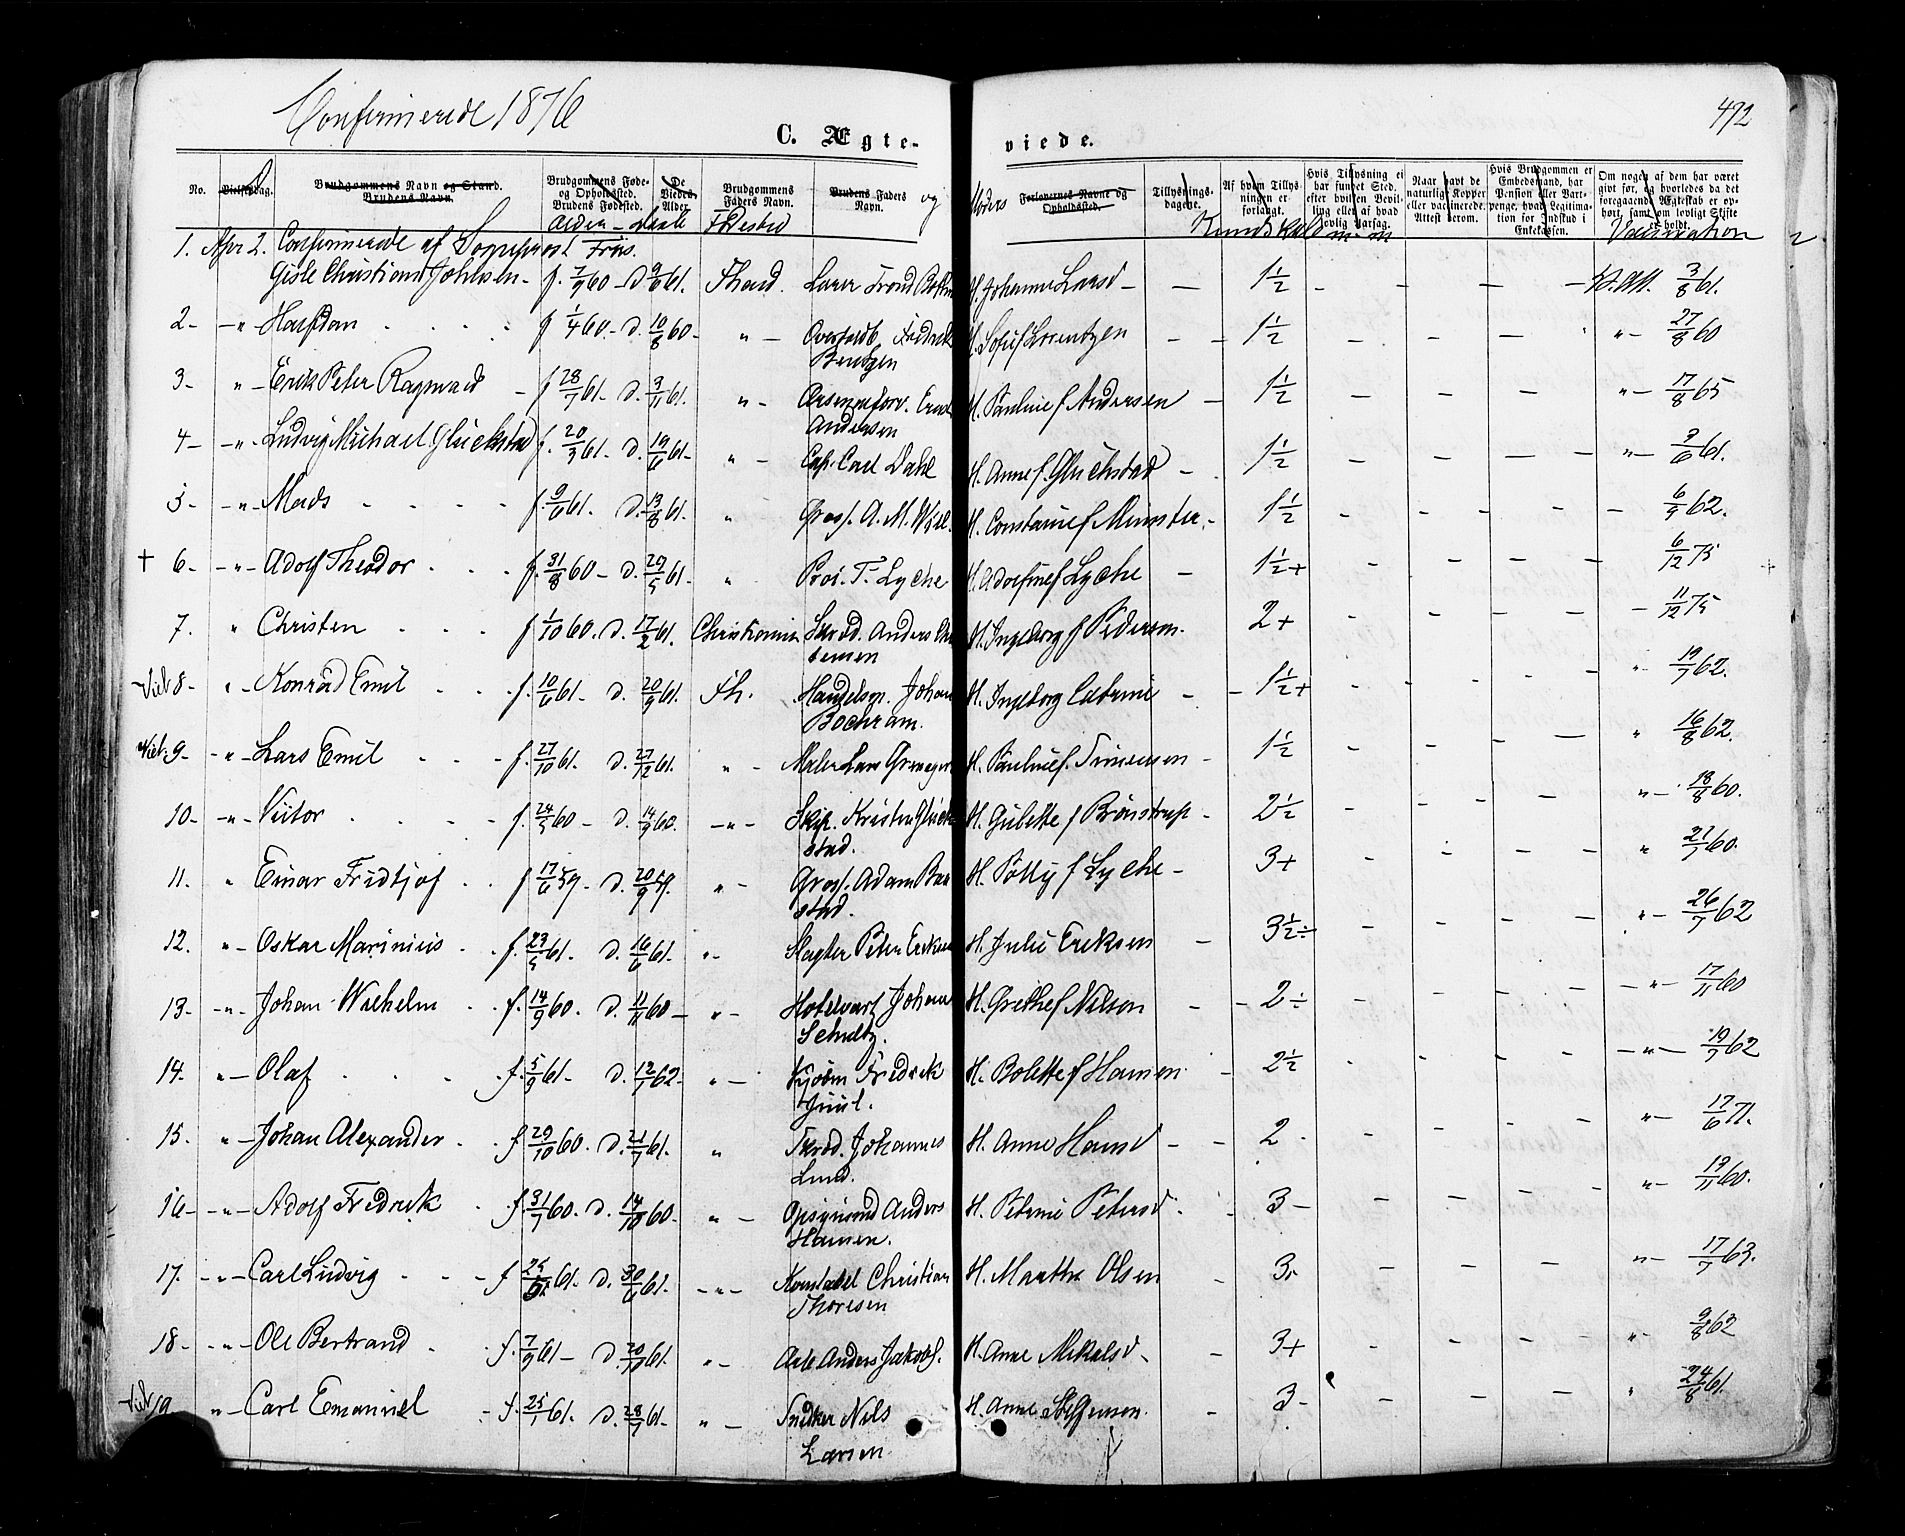 Confirmerede 1876
472
C. Ægte-
viede.
No. Vielsesdag. Brudgommens Navn og Stand. Brudens Navn. Brudgommens Føde- og Opholdssted. Brudens Fødested. De Viedes Alder. Brudgommens Faders Navn. Brudens Faders Navn. og Moders Forlovernes Navne og Opholdssted. Tillysnings-dagene. Af hvem Tillysningen er forlangt. Hvis Tillysning ei har fundet Sted, efter hvilken Bevilling eller af hvad lovlig Aarsag. Naar havt de naturlige Kopper eller vaccinerede. Attest herom. Hvis Brudgommen er Embedsmand, har Pension eller Vartpenge, hvad Legitimation for Indskud i Enkekassen. Om nogen af dem har været gift før, og hvorledes da det foregaaende Ægteskab er ophørt, samt om lovligt Skifte er holdt.
Alder - Daab Fødested Kundskab m.m. Vaccination
1. Apr 2. Confirmerede af Sogneprest Friis.
Gisle Christiane Johnsen - f. 7/9 60 - d 9/6 61. Thond. Lærer Trond H. Johanne Larsd - - 1½ - - - - V. Att. 3/8 61.
2 - " - Halfdan f 1/4 60 - d. 10/8 60 - " - Overtoldb. Fredrik Bentzen H. Sofie f Lorentzen - - 1½ - - - " - 27/8 60
3 - " - Erik Peter Ragnvald - f 28/7 61 - d. 3/11 61. " - Andersen H. Pauline f Andersen - 1½ - - - " - 17/8 65
4 - " - Ludvig Michael Gluckstad f. 20/3 61. d. 19/6 61 - " - Cap. Carl Dahl H. Anne f. Gluckstad - 1½ - - - - " - 3/6 61.
5 - " - Mads f. 9/6 61. d. 13/8 61. " Gross. A. M. Wiel. H. Constance f Munster. - 1½ - - - - - 6/9 62.
+ 6. - " - Adolf Theodor f. 31/8 60 - d. 29/5 61. " Pros. T. Lyche H. Adolfine f Lyche - 1½+ - - - - 6/12 75
7. " Christen f 1/10 60. d. 17/2 61. Christiania Skræd. Anders H. Ingeborg f Pedersen. 2+ - - - - - 11/12 75
Viel 8 - " - Konrad Emil f. 10/6 61 - d. 20/9 61. Fh. Handelsm. Johan Bochram. H. Ingeborg Catrine - - 1½+ - - - - " 19/7 62.
Viel. 9 - " - Lars Emil - f. 27/10 61. d. 27/12 61. " - Maler Lars H. Pauline f. Simensen - 1½ - - - - " 16/8 62.
10 - " - Victor f. 24/5 60 - d. 14/9 60. - " - Skip. Kristen Gluckstad. H. Gulette f Brönstrup - 2½ - - - - " - 18/8 60.
11. " Einar Fridtjof f 17/6 59 - d. 20/9 59. " - Gross. Adam H. Polly f Lyche - 3+ - - - - " 27/7 60.
12. " - Oskar Marinius f. 23/5 61. d. 16/6 61. " - Slagter Peter Eriksen H. Julie Eriksen - 3½÷ - - - - " - 26/7 62
13. - " - Johan Wilhelm f. 14/9 60. d. 11/11 60 - " - Hotelvært Johan Schultz. H. Grethe f Nilson - - 2÷ - - - - - " - 17/11 60
14. " - Olaf f. 5/9 61 - d. 12/7 62 - " - Kjöbm Fredrik Juul. H. Bolette f Hansen - 2½ - - - - - " - 19/7 62
15. " - Johan Alexander f 29/10 60. d. 21/7 61. " Skræd. Johannes Lund. H. Anne Hansd - - 2 - - - - - " - 17/6 71.
16 - - " - Adolf Fredrik f 31/7 60. d. 14/10 60 - " - Opsynsmd Anders Hansen. H. Petrine Petersd 3 - - - - - " - 13/11 60.
17. - " - Carl Ludvig - f 25/5 61. d. 30/6 61. - " - Konstabel Christian Thoresen H. Martha Olsen - 3. - - - - " - 17/7 63.
18 - - " - Ole Bertrand f. 7/9 61 - d. 20/10 61. " - Anders Jakobs. H. Anne Mikalsd - - 3+ - - - - " - 9/8 62
Viel 19 " - Carl Emanuel f. 25/1 61. d. 28/7 61. " - Snidker Nils Larsen H. Anne Steffensen. - 3 - - - - " 24/8 61.